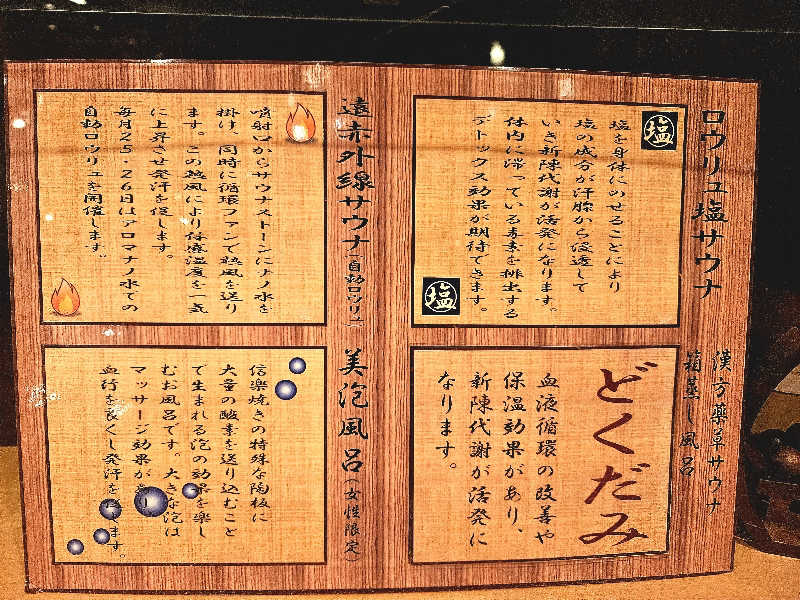 ロウリュ塩サウナ
塩
塩を身体にのせることにより
塩の成分が汗腺から浸透して
いき新陳代謝が活発になります。
体内に滞っている毒素を排出する
デトックス効果が期待できます。
塩
漢方薬草サウナ
箱蒸し風呂
どくだみ
血液循環の改善や
保温効果があり、
新陳代謝が活発に
なります。
遠赤外線サウナ(自動ロウリュ)
噴射口からサウナストーンにナノ水を
掛け、同時に循環ファンで熱風を送り
ます。この熱風により体感温度を一気
に上昇させ発汗を促します。
毎月25・26日はアロマナノ水での
自動ロウリュを開催します。
美泡風呂(女性限定)
信楽焼きの特殊な陶板に
大量の酸素を送り込むこと
で生まれる泡の効果を楽し
むお風呂です。大きな泡は
マッサージ効果が
血行を良くし発汗を ます。